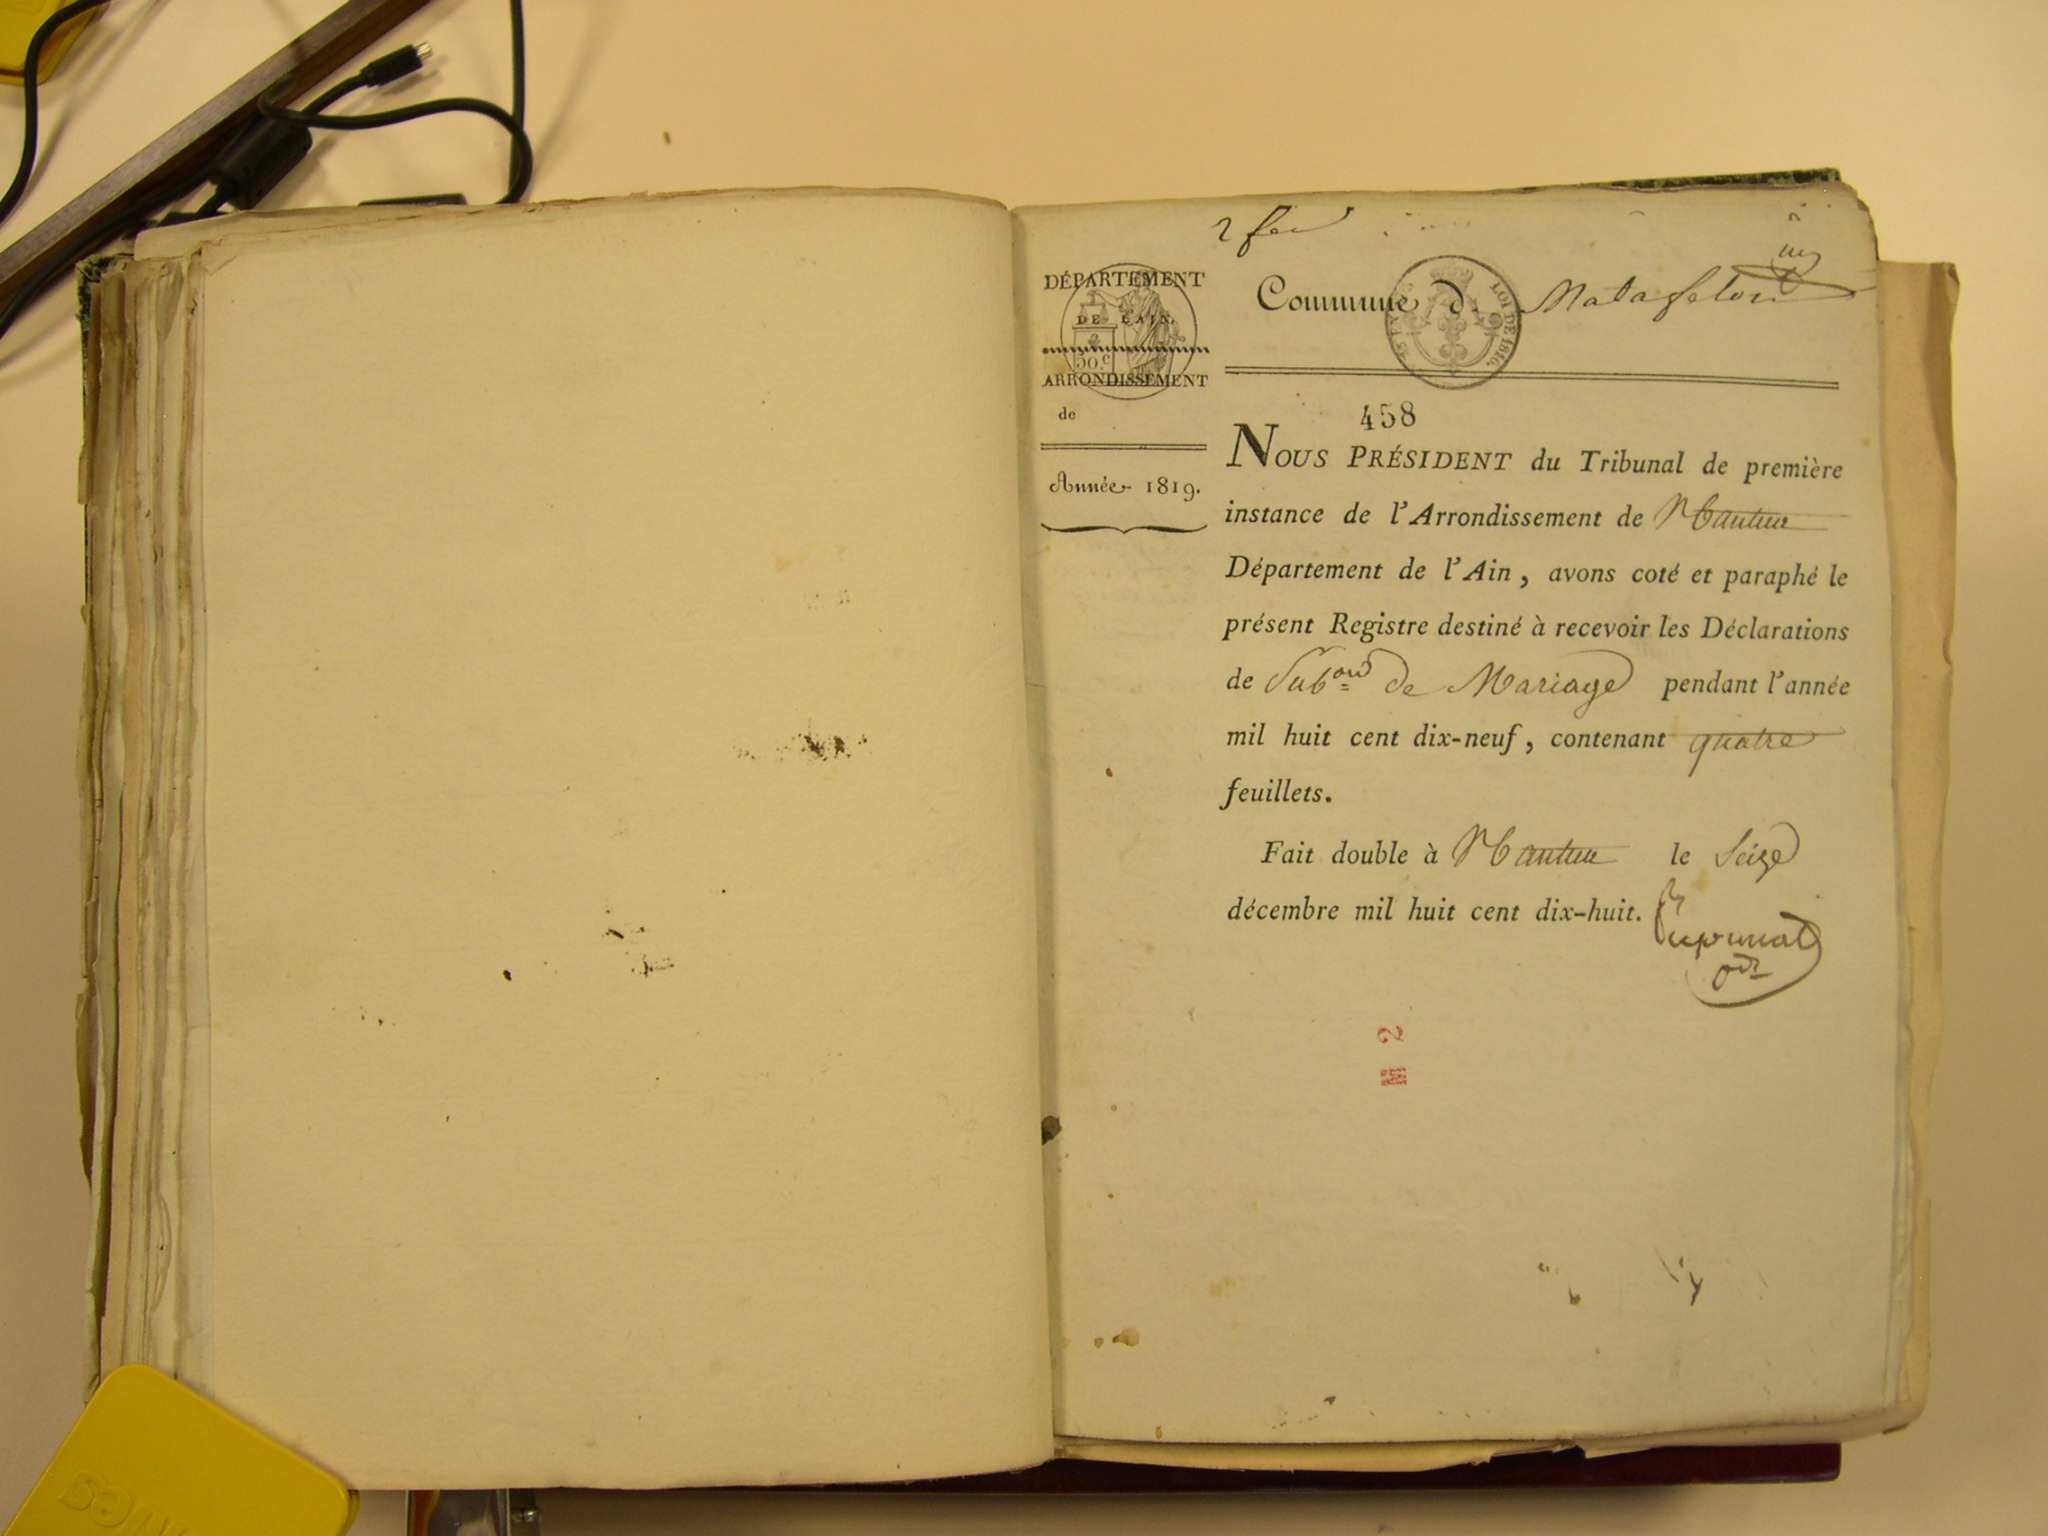 2 feu
DÉPARTEMENT
DE L'AIN.
50 c.
ARRONDISSEMENT
de
Année 1819.
Commune d Matafelon
LOI DE 1816.
458
NOUS PRÉSIDENT du Tribunal de première
instance de l'Arrondissement de Nantua
Département de l'Ain, avons coté et paraphé le
présent Registre destiné à recevoir les Déclarations
de Pubon de Mariage pendant l'année
mil huit cent dix-neuf, contenant quatre
feuillets.
Fait double à Nantua le Seize
décembre mil huit cent dix-huit.
2